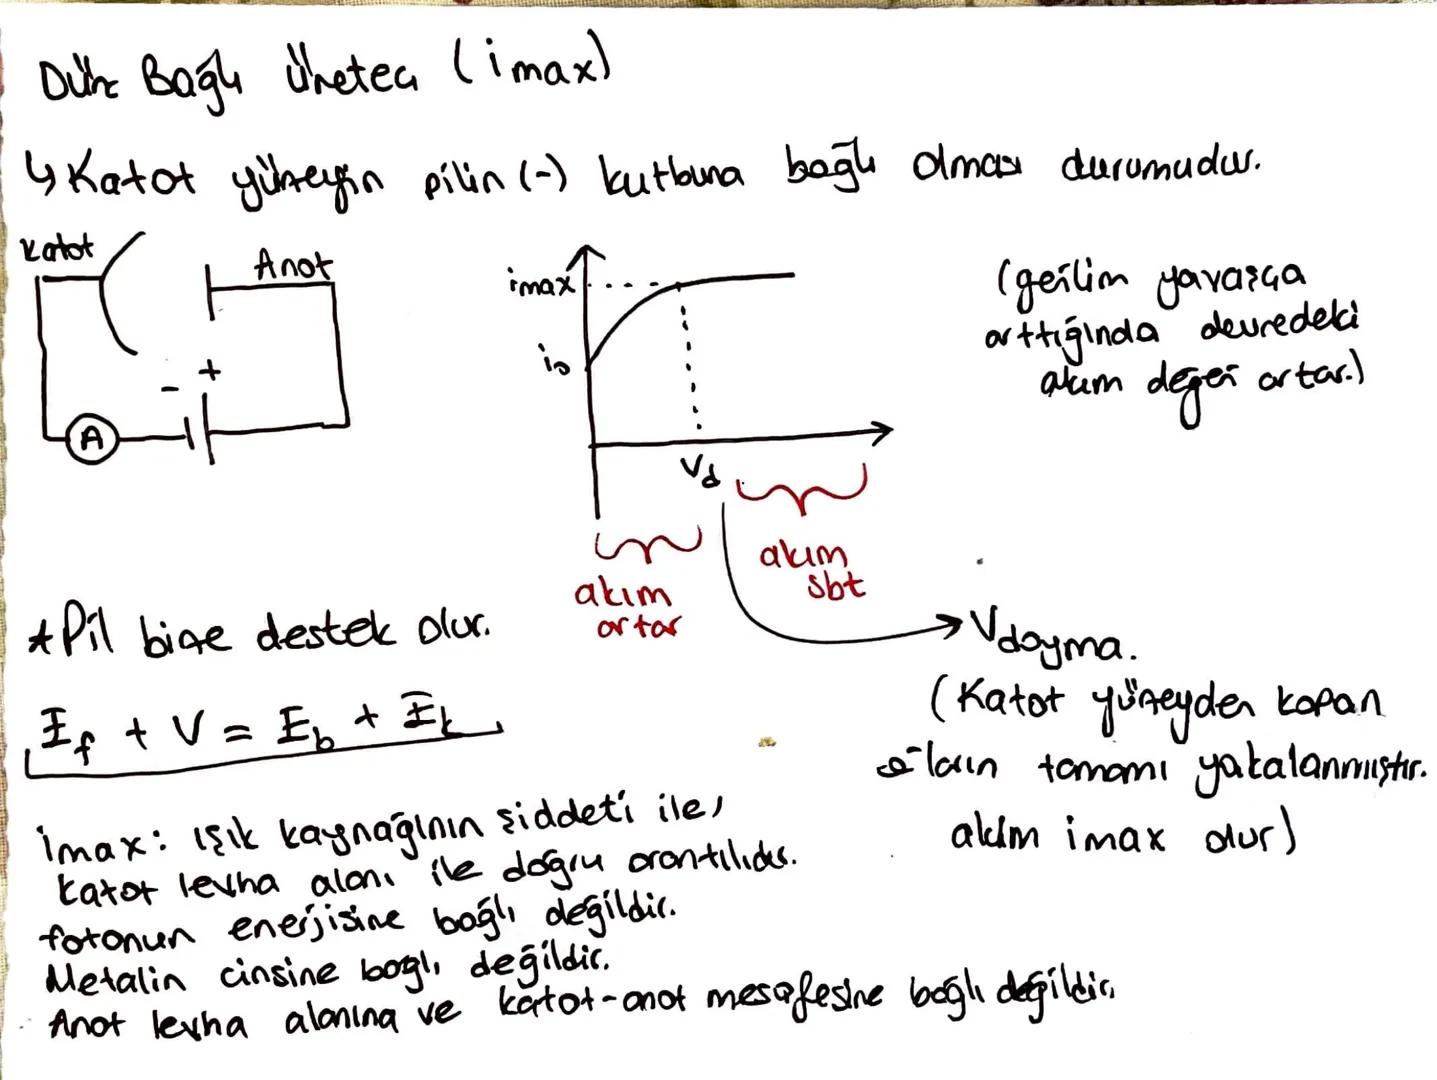 Düz Bağlı Üreteci (imax)
↳ Katot yüzeyin pilin (-) kutbuna bağlı olması durumudur.
Katot
Anot
- +
A
imax
i₀
Vd
akım
artar
akım
sbt
(gerilim yavaşça
arttığında devredeki
akım değeri artar.)
Vdoyma.
(Katot yüzeyden kopan
e⁻ların tamamı yakalanmıştır.
akım imax olur)
* Pil bize destek olur.
Ef + V = Eb + Ek
imax: ışık kaynağının şiddeti ile,
katot levha alanı ile doğru orantılıdır.
fotonun enerjisine bağlı değildir.
Metalin cinsine bağlı değildir.
Anot levha alanına ve katot-anot mesafesine bağlı değildir.